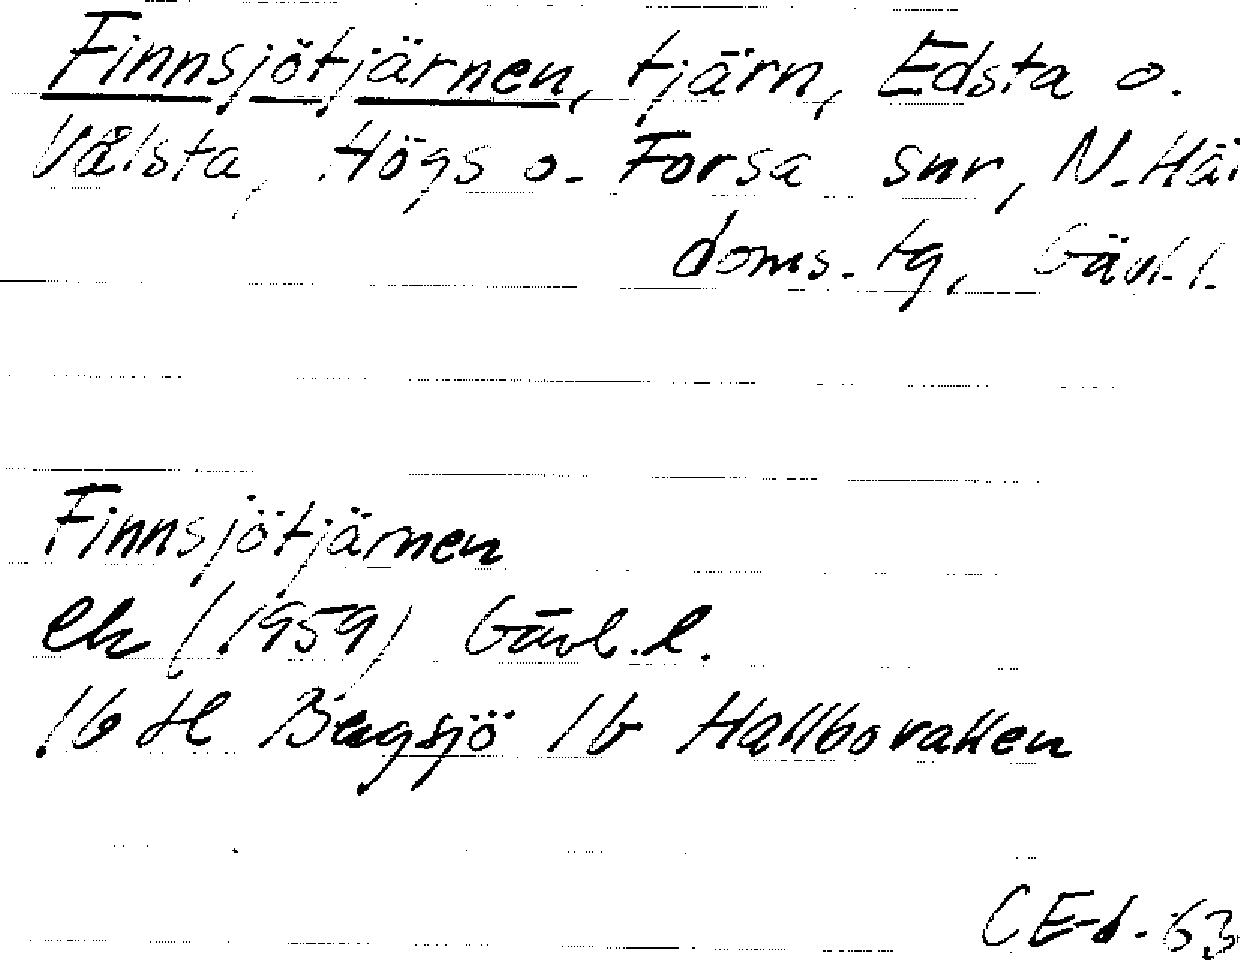 Finnsjötjärnen, tjärn, Edsta o.
Välsta, Högs o. Forsa snr, N. Häl
doms. tg, Gävl. l.
Finnsjötjärnen
ek (1959) Gävl. l.
16 H Bergsjö 1b Hallbovallen
CEd. 63